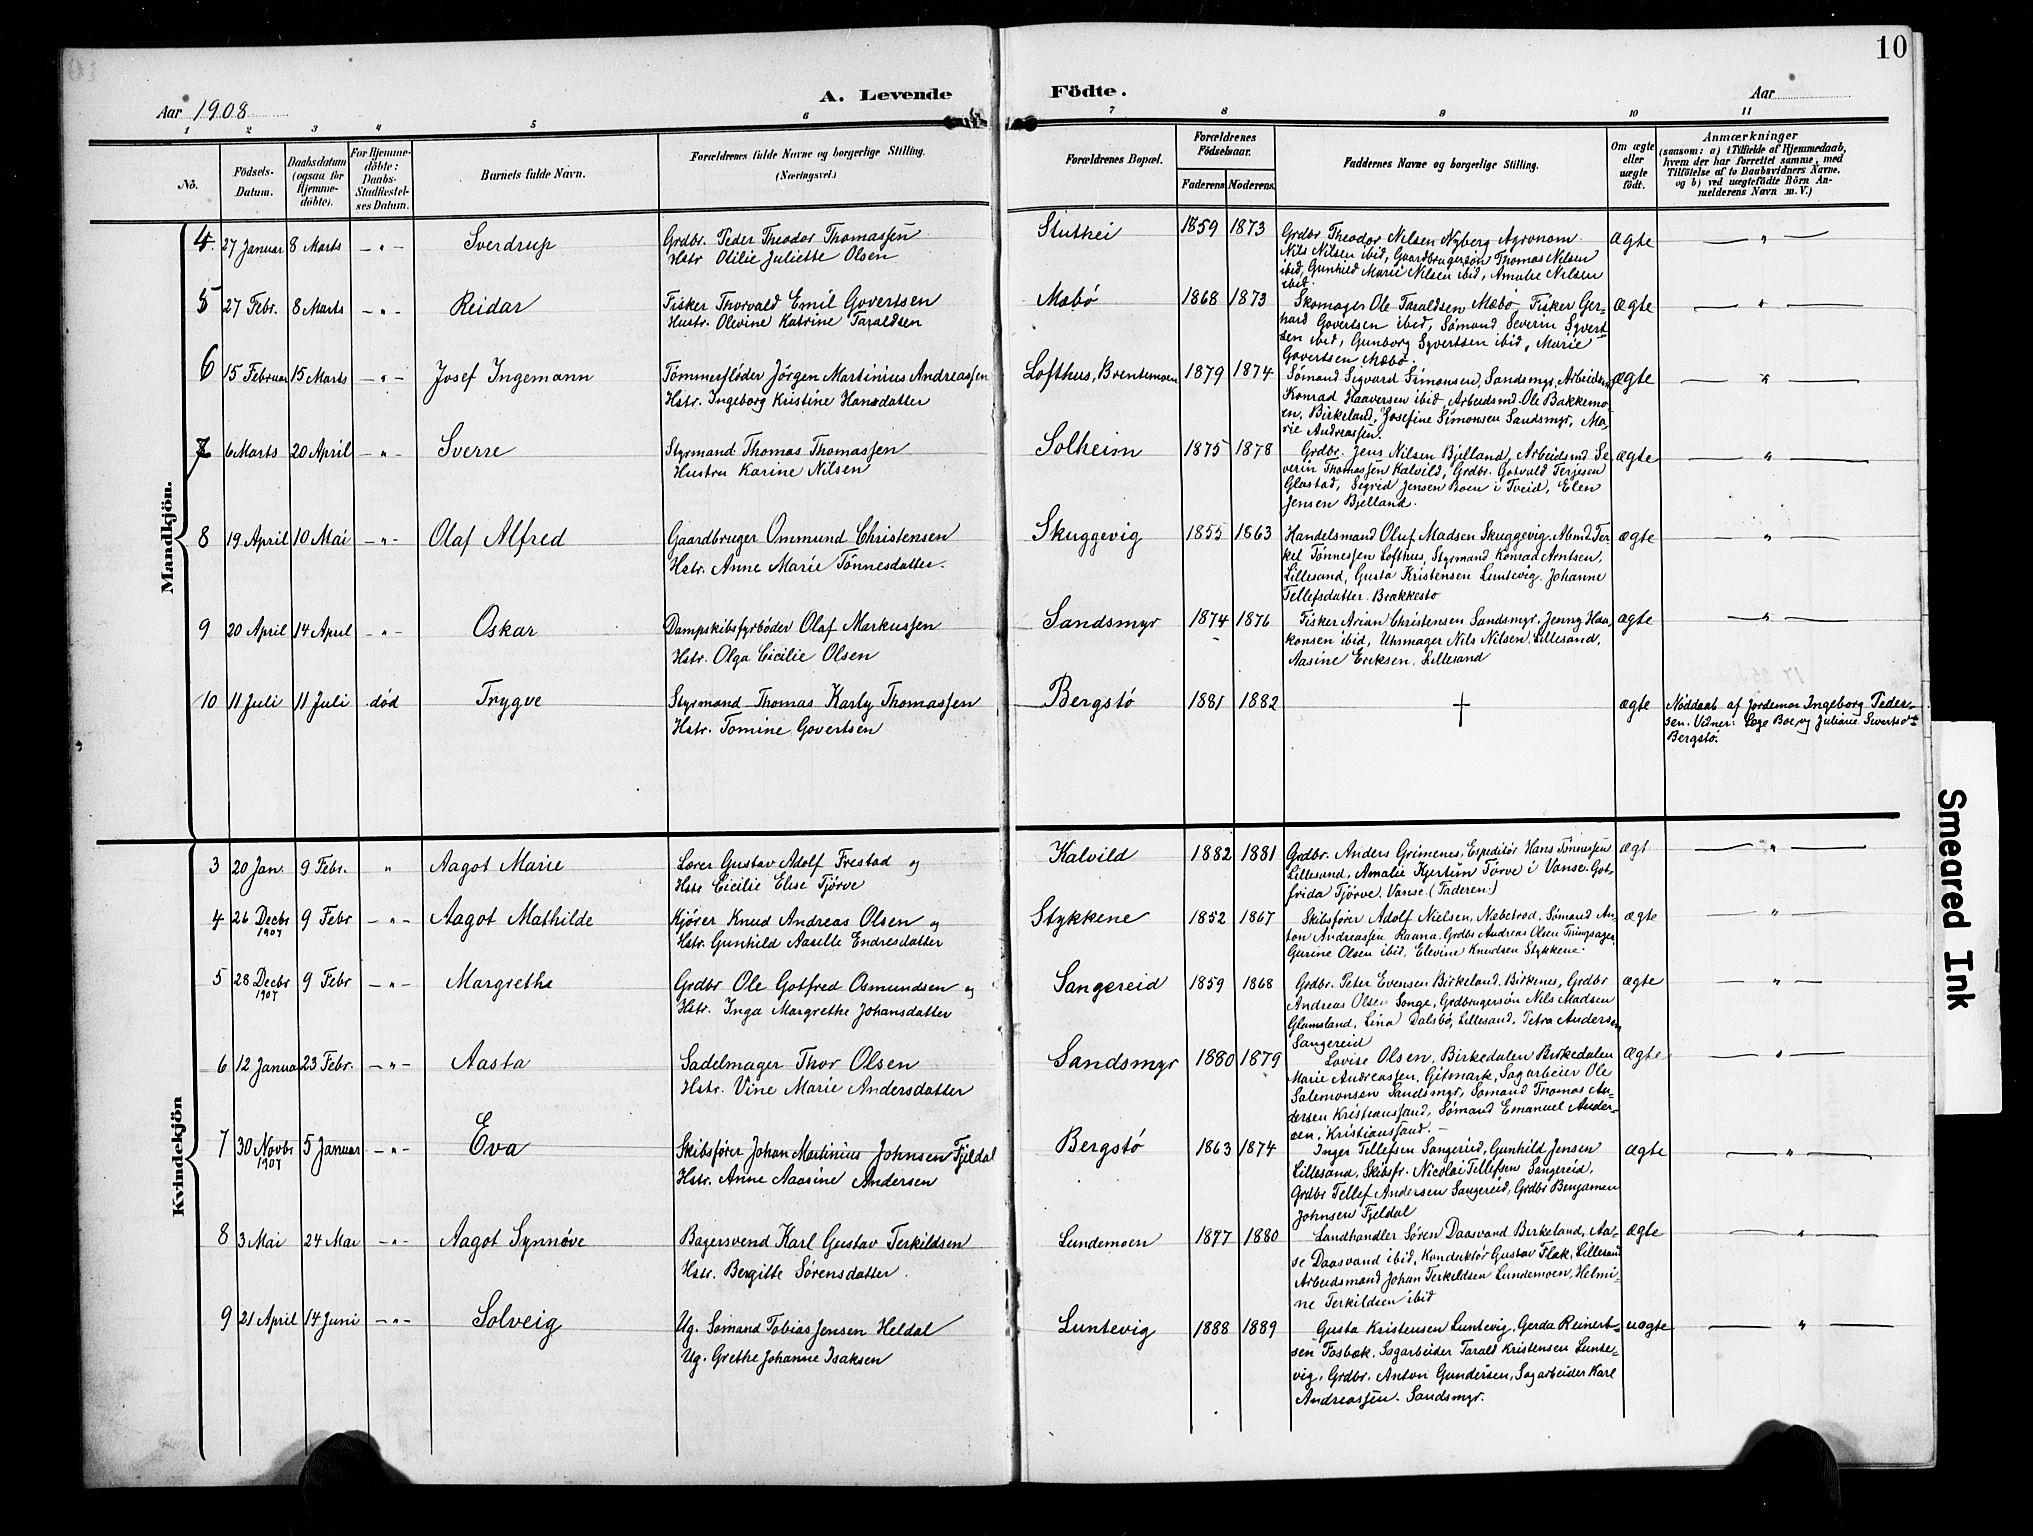 10
Aar 1908
A. Levende
Födte.
Aar
1 2 3 4 5 6 7 8 9 10 11
No.
Födsels-
Datum.
Daabsdatum
(ogsaa for
Hjemme-
döbte).
For Hjemme-
döbte:
Daabs-
Stadfæstel-
ses Datum.
Barnets fulde Navn.
Forældrenes fulde Navne og borgerlige Stilling.
(Næringsvei.)
Forældrenes Bopæl.
Forældrenes
Födselsaar.
Faderens. Moderens.
Faddernes Navne og borgerlige Stilling.
Om ægte
eller
uægte
födt.
Anmærkninger
(saasom: a) i Tilfælde af Hjemmedaab,
hvem der har forrettet samme, med
Tilföielse af to Daabsvidners Navne,
og b) ved uægtefödte Börn An-
melderens Navn m. V.)
Mandkjön.
4. 27 Januar 8 Marts — " — Sverdrup
Grdbr. Peder Theodor Thomassen
Hstr Otilie Juliette Olsen
Stuthei 1859 1873
Grdbr Theodor Nilsen Nyberg Agronom
Nils Nilsen ibid, Gaardbrugersøn Thomas Nilsen
ibid, Gunhild Marie Nilsen ibid, Amalie Nilsen
ibid.
ægte — " —
5 27 Febr. 8 Marts — " — Reidar
Fisker Thorvald Emil Govertsen
Hustr. Olevine Katrine Taraldsen
Mæbø 1868 1873
Skomager Ole Taraldsen Mæbø Fisker Ger-
hard Govertsen ibid, Sømand Severin Syvert
sen ibid, Gunborg Syvertsen ibid, Marie
Govertsen Mæbø.
ægte — " —
6 15 Februar 15 Marts — " — Josef Ingemann
Tømmerfløder Jørgen Martinius Andreassen
Hstr. Ingeborg Kristine Hansdatter
Lofthus, Brentemoen 1879 1874
Sømand Sigvard Simonsen, Sandsmyr, Arbeidsm
Konrad Haaversen ibid, Arbeidsmd. Ole Bakkemo-
en, Birkeland, Josefine Simonsen Sandsmyr, Ma-
rie Andreassen.
ægte — " —
7 6 Marts 20 April — " — Sverre
Styrmand Thomas Thomassen
Hustru Karine Nilsen
Solheim 1875 1878
Grdbr. Jens Nilsen Bjelland, Arbeidsmd Se
verin Thomassen Kalvild, Grdbr. Gotvald Terjesen
Glastad, Sigrid Jensen Boen i Tveid, Elen
Jensen Bjelland.
ægte — " —
8 19 April 10 Mai — " — Olaf Alfred
Gaardbruger Ommund Christensen
Hstr. Anne Marie Tønnesdatter.
Skuggevig 1855 1863
Handelsmand Oluf Madsen Skuggevig, Abmd Ter
kel Tønnessen Lofthus, Styrmand Konrad Arntsen,
Lillesand, Gusta Kristensen Luntevig, Johanne
Tellefsdatter. Brækkestø
ægte — " —
9 20 April 14 April — " — Oskar
Dampskibsfyrbøder Olaf Markussen
Hstr. Olga Cicilie Olsen
Sandsmyr 1874 1876
Fisker Arian Christensen Sandsmyr, Jenny Haa
konsen ibid, Uhrmager Nils Nilsen, Lillesand,
Aasine Eriksen, Lillesand
ægte — " —
10 11 Juli 11 Juli død Trygve
Styrmand Thomas Karly Thomassen
Hstr. Tomine Govertsen
Bergstø 1881 1882
†
ægte
Nøddaab af Jordemor Ingeborg Peder-
sen. Vidner: Boe og Juliane
Bergstø.
Kvindekjön
3 20 Jan 9 Febr. " Aagot Marie
Lærer Gustav Adolf Frestad og
Hstr Cicilie Elise Tjørve
Kalvild 1882 1881
Grdbr. Anders Grimenes, Expeditør Hans Tønnesen
Lillesand, Amalie Tørve i Vanse. Got-
frida Tjörve, Vanse. (Faderen)
ægt — " —
4 26 Decbr 1907 9 Febr — " — Aagot Mathilde
Kjører Knud Andreas Olsen og
Hstr. Gunhild Aaselle Endresdatter
Stykkene 1852 1867
Skibsfører Adolf Nielsen, Næbetrød, Sømand An-
ton Andreassen Raana. Grdbr Andreas Olsen
Gurine Olsen ibid, Elevine Knudsen Stykkene
ægte — " —
5 28 Decbr 1907 9 Febr — " — Margrethe
Grdbr Ole Gotfred Osmundsen og
Hstr. Inga Margrethe Johansdatter
Sangereid 1859 1868
Grdbr. Peter Evensen Birkeland, Birkenes, Grdbr
Andreas Olsen Songe, Grdbrugersøn Nils Madsen
Glamsland, Lina Dalsbø, Lillesand, Petra Andersen
Sangereid
ægte — " —
6 12 Januar 23 Febr. — " — Aasta
Sadelmager Thor Olsen
Hstr. Vine Marie Andersdatter
Sandsmyr 1880 1879
Lovise Olsen, Birkedalen Birkedalen
Marie Andreassen, Gitmark, Sagarbeier Ole
Salemonsen Sandsmyr, Sømand Thomas An-
dersen Kristianssand, Sømand Emanuel Ander-
sen, Kristianssand. —
Ægte — " —
7 30 Novbr 1907 5 Januar — " — Eva
Skibsfører Johan Martinius Johnsen Fjeldal
Hstr. Anne Aasine Andersen
Bergstø 1863 1874
Inger Tellefsen Sangereid, Gunhild Jensen
Lillesand, Skibsfr. Nicolai Tellefsen Sangereid,
Grdbr Tellef Andersen Sangereid, Grdbr Benjamen
Johnsen Fjeldal
ægte — " —
8 3 Mai 24 Mai — " — Aagot Synnøve
Bagersvend Karl Gustav Terkildsen
Hstr. Bergitte Sørensdatter.
Lundemoen 1877 1880
Landhandler Søren Daasvand Birkeland, Aa-
se Daasvand ibid, Konduktør Gustav Flak, Lillesand
Arbeidsmand Johan Terkildsen Lundemoen, Helmi-
ne Terkildsen ibid
Ægte — " —
9 21 April 14 Juni — " — Solveig
Ug. Sømand Tobias Jensen Heldal
Ug. Grethe Johanne Isaksen
Luntevig 1888 1889
Gusta Kristensen Luntevig, Gerda Reinert-
sen Fosbæk, Sagarbeider Tarald Kristensen Lunte-
vig, Grdbr. Anton Gundersen, Sagarbeider Karl
Andreassen. Sandsmyr.
uægte — " —
Smeared Ink